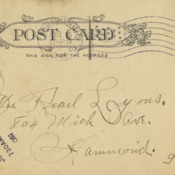 POST CARD
THIS SIDE FOR THE ADDRESS
Pearl Lyons.
804 Mich Ave.
Hammond.